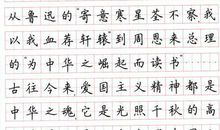 从鲁迅的“寄意寒星荃不察我
以我血荐轩辕到周恩来总理
的“为中华之崛起而读书”
古往今来爱国主义精神都是
中华之魂它是光照千秋的高